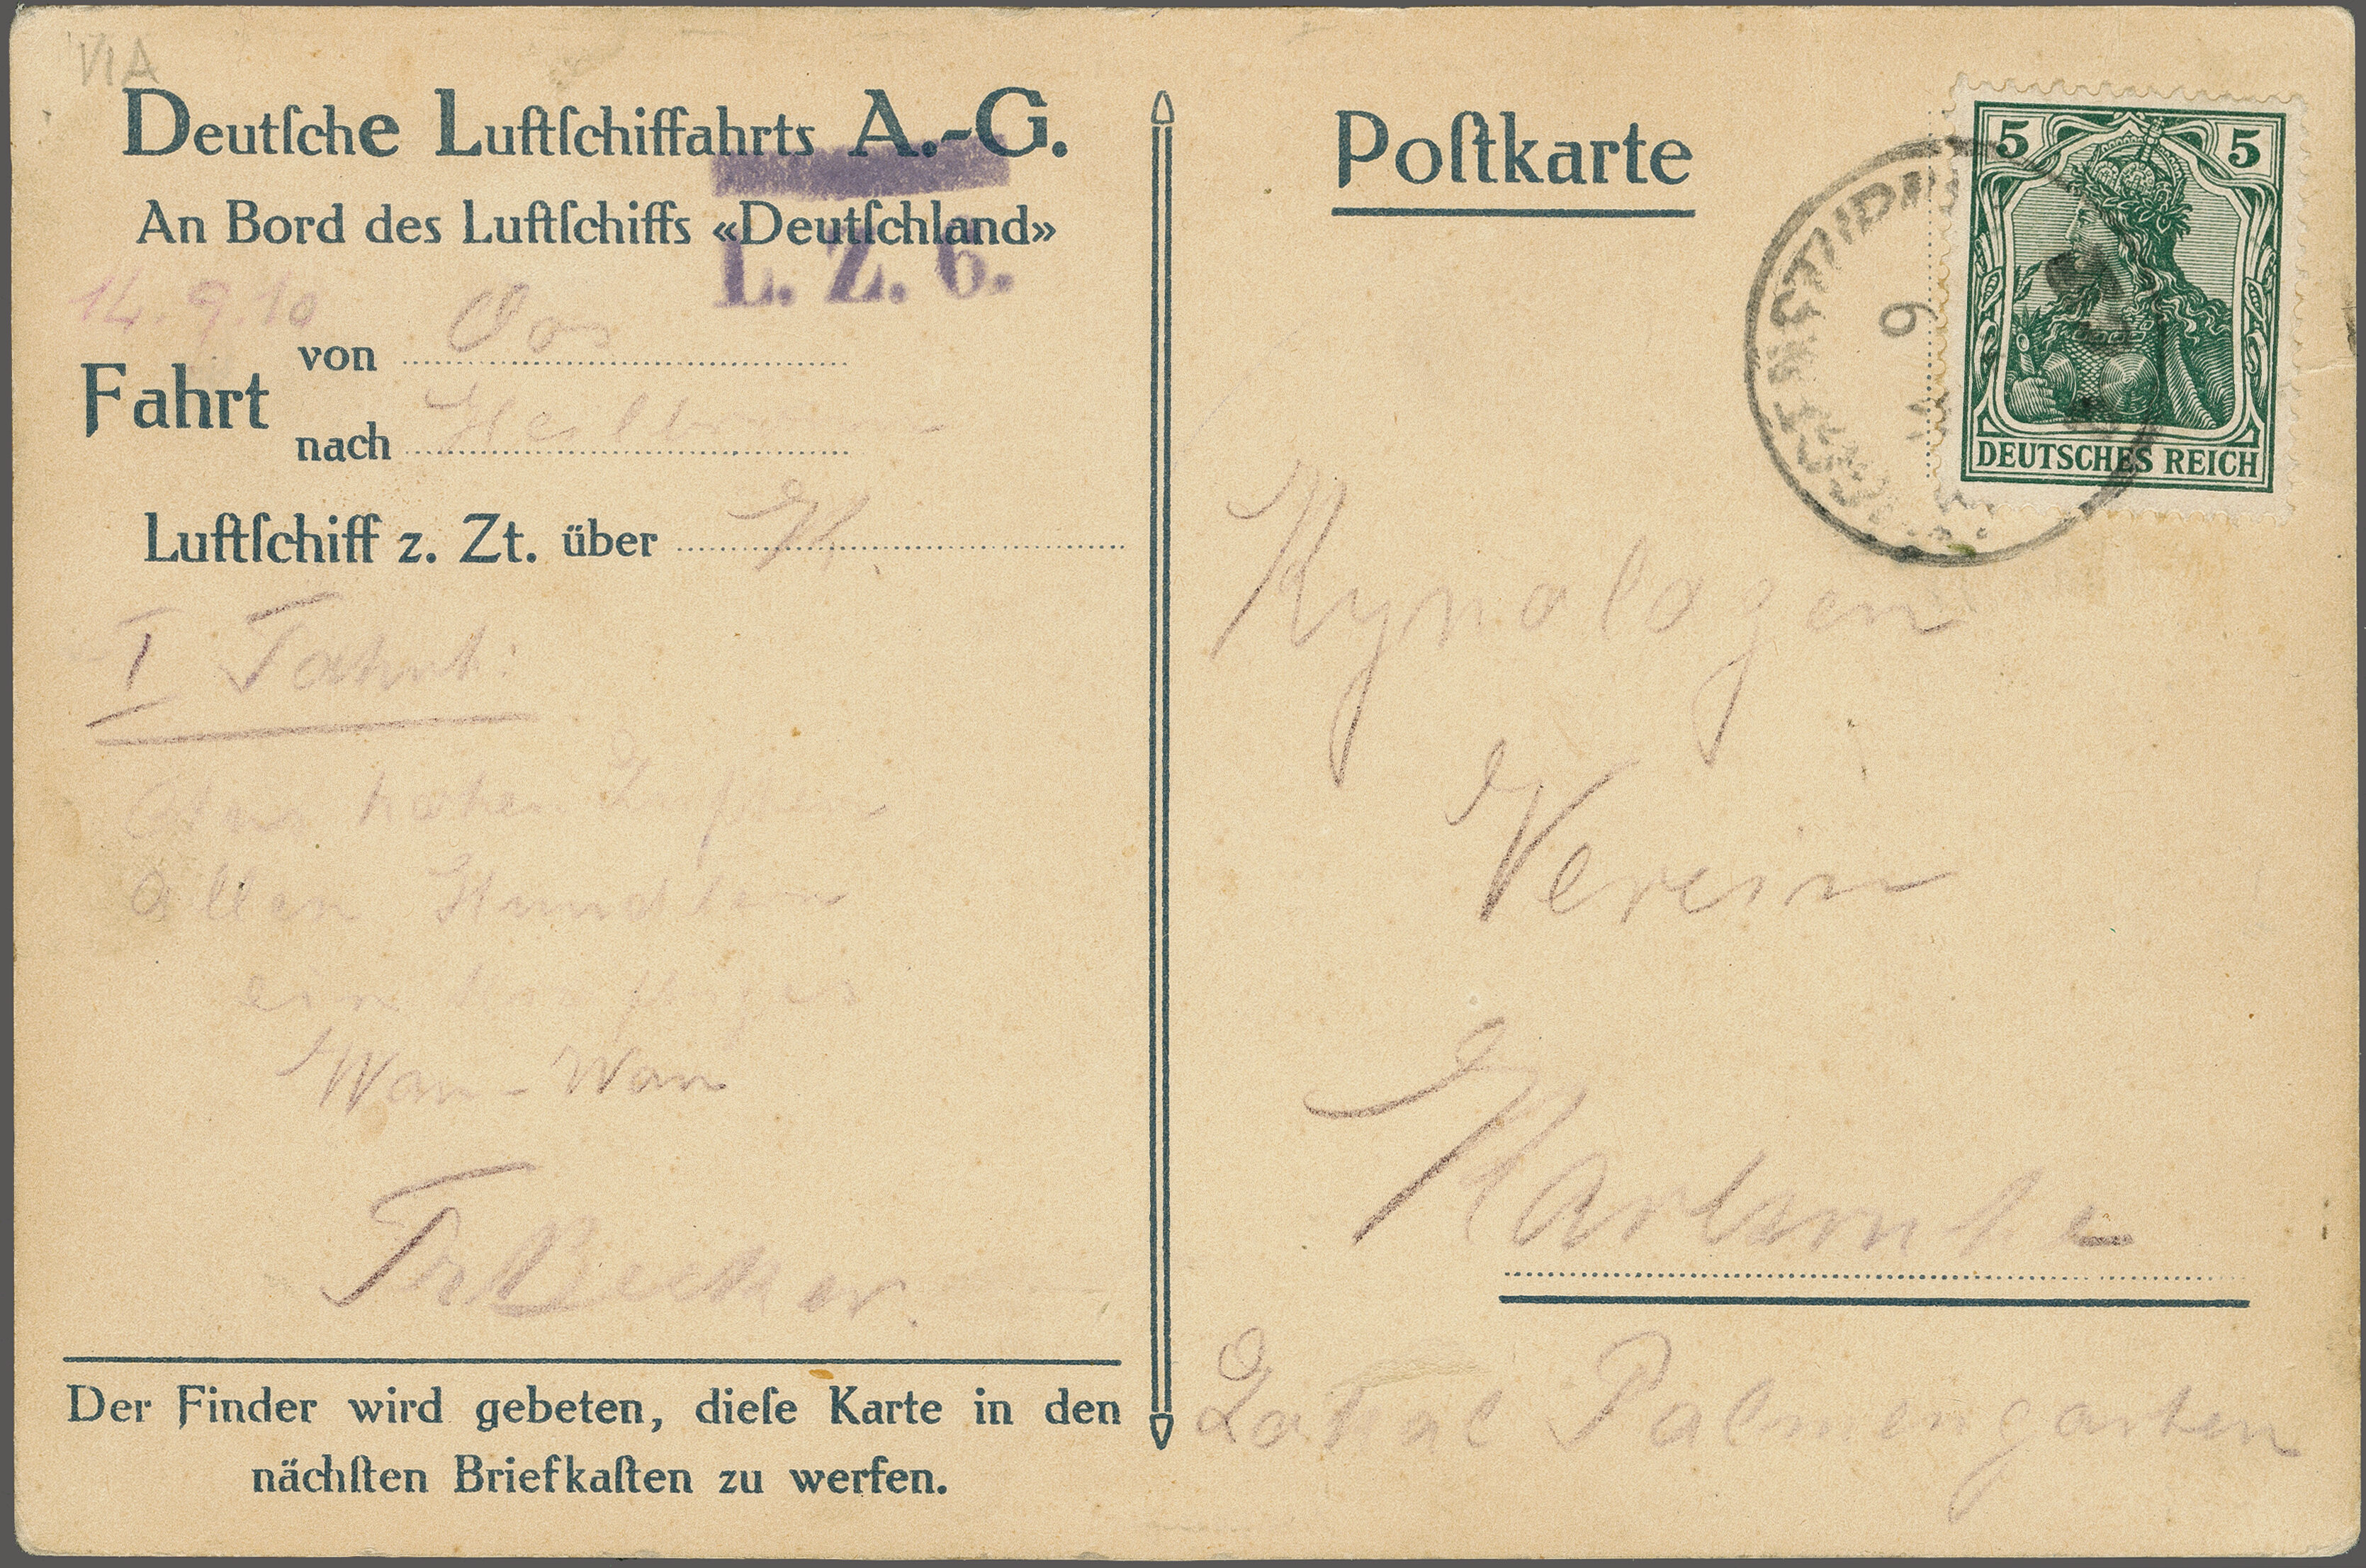 VIA
Deutſche Luftſchiffahrts A.-G.
An Bord des Luftſchiffs «Deutſchland»
L. Z. 6.
14.9.10
Fahrt
von Oos
nach Heilbronn
Luftſchiff z. Zt. über H.
I Fahrt:
hohen
allen Hundlern
ein
Wau-Wau
Fr Becker.
Der Finder wird gebeten, dieſe Karte in den
nächſten Briefkaſten zu werfen.
Poſtkarte
5 5
DEUTSCHES REICH
9
Kynologen
Verein
Karlsruhe
Lokal Palmengarten